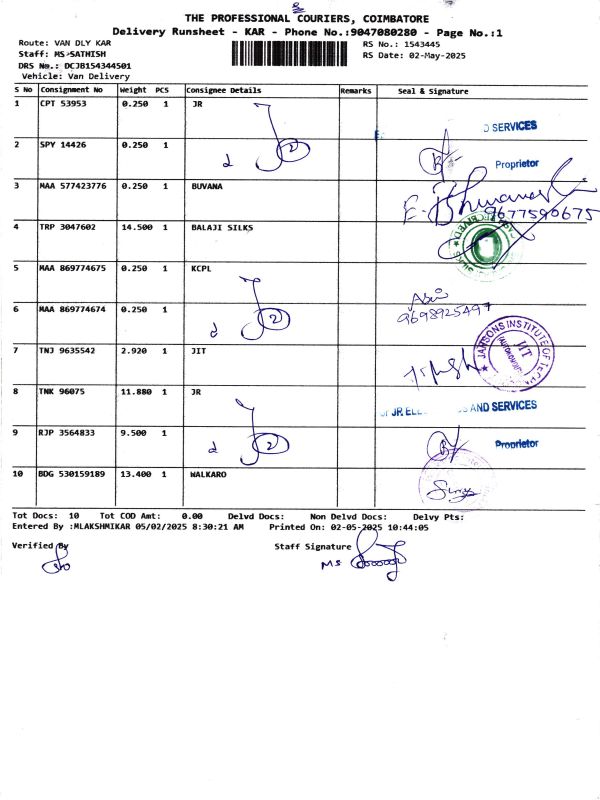 THE PROFESSIONAL COURIERS, COIMBATORE
Delivery Runsheet - KAR - Phone No.:9047080280 - Page No.:1
Route: VAN DLY KAR
RS No.: 1543445
Staff: MS-SATHISH
RS Date: 02-May-2025
DRS No.: DCJB154344501
Vehicle: Van Delivery
S No Consignment No Weight PCS Consignee Details Remarks Seal & Signature
1 CPT 53953 0.250 1 JR
SERVICES
2 SPY 14426 0.250 1 d 2
Proprietor
3 MAA 577423776 0.250 1 BUVANA
9677590675
4 TRP 3047602 14.500 1 BALAJI SILKS
5 MAA 869774675 0.250 1 KCPL
6 MAA 869774674 0.250 1 d 2
9698925497
7 TNJ 9635542 2.920 1 JIT
JANSONS INSTITUTE OF
JIT
8 TNK 96075 11.880 1 JR
JR AND SERVICES
9 RJP 3564833 9.500 1 d 2
Proprietor
10 BDG 530159189 13.400 1 WALKARO
Tot Docs: 10 Tot COD Amt: 0.00 Delvd Docs: Non Delvd Docs: Delvy Pts:
Entered By :MLAKSHMIKAR 05/02/2025 8:30:21 AM Printed On: 02-05-2025 10:44:05
Verified By
Staff Signature
MS